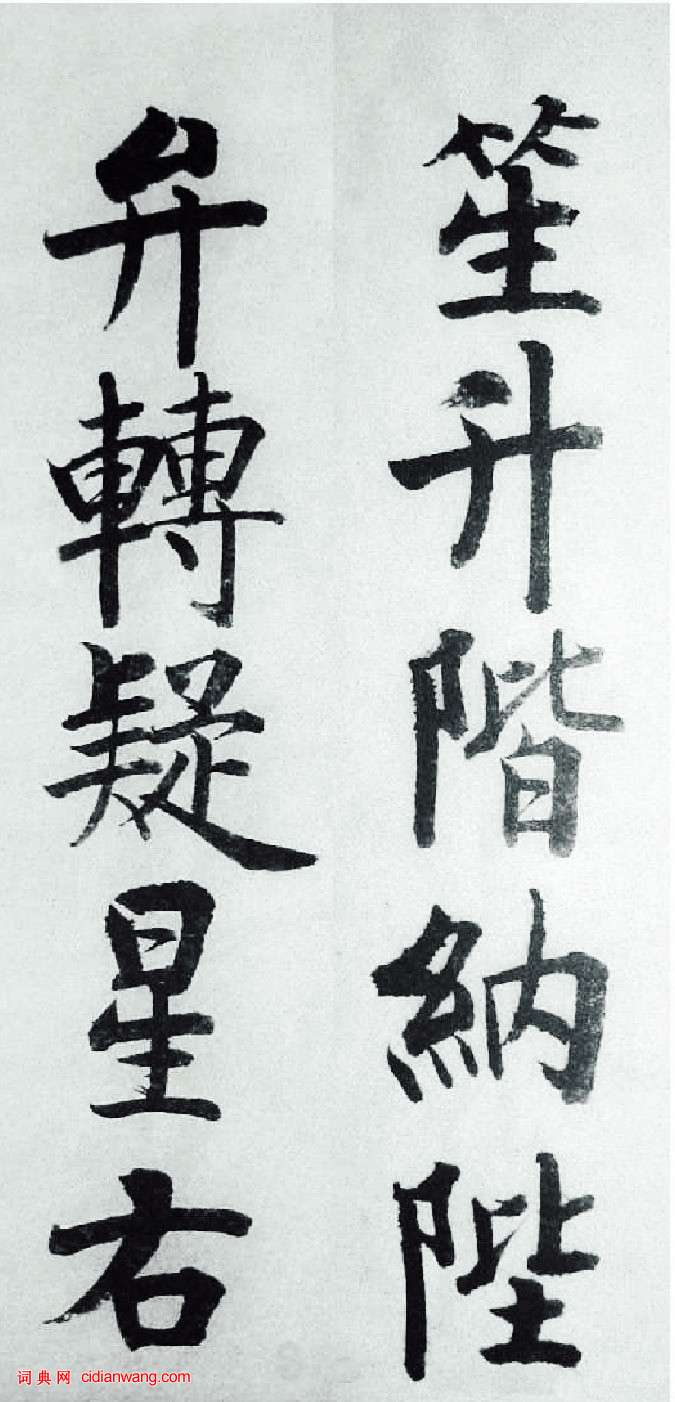 笙升階納陛
弁轉疑星右
词典网 cidianwang.com